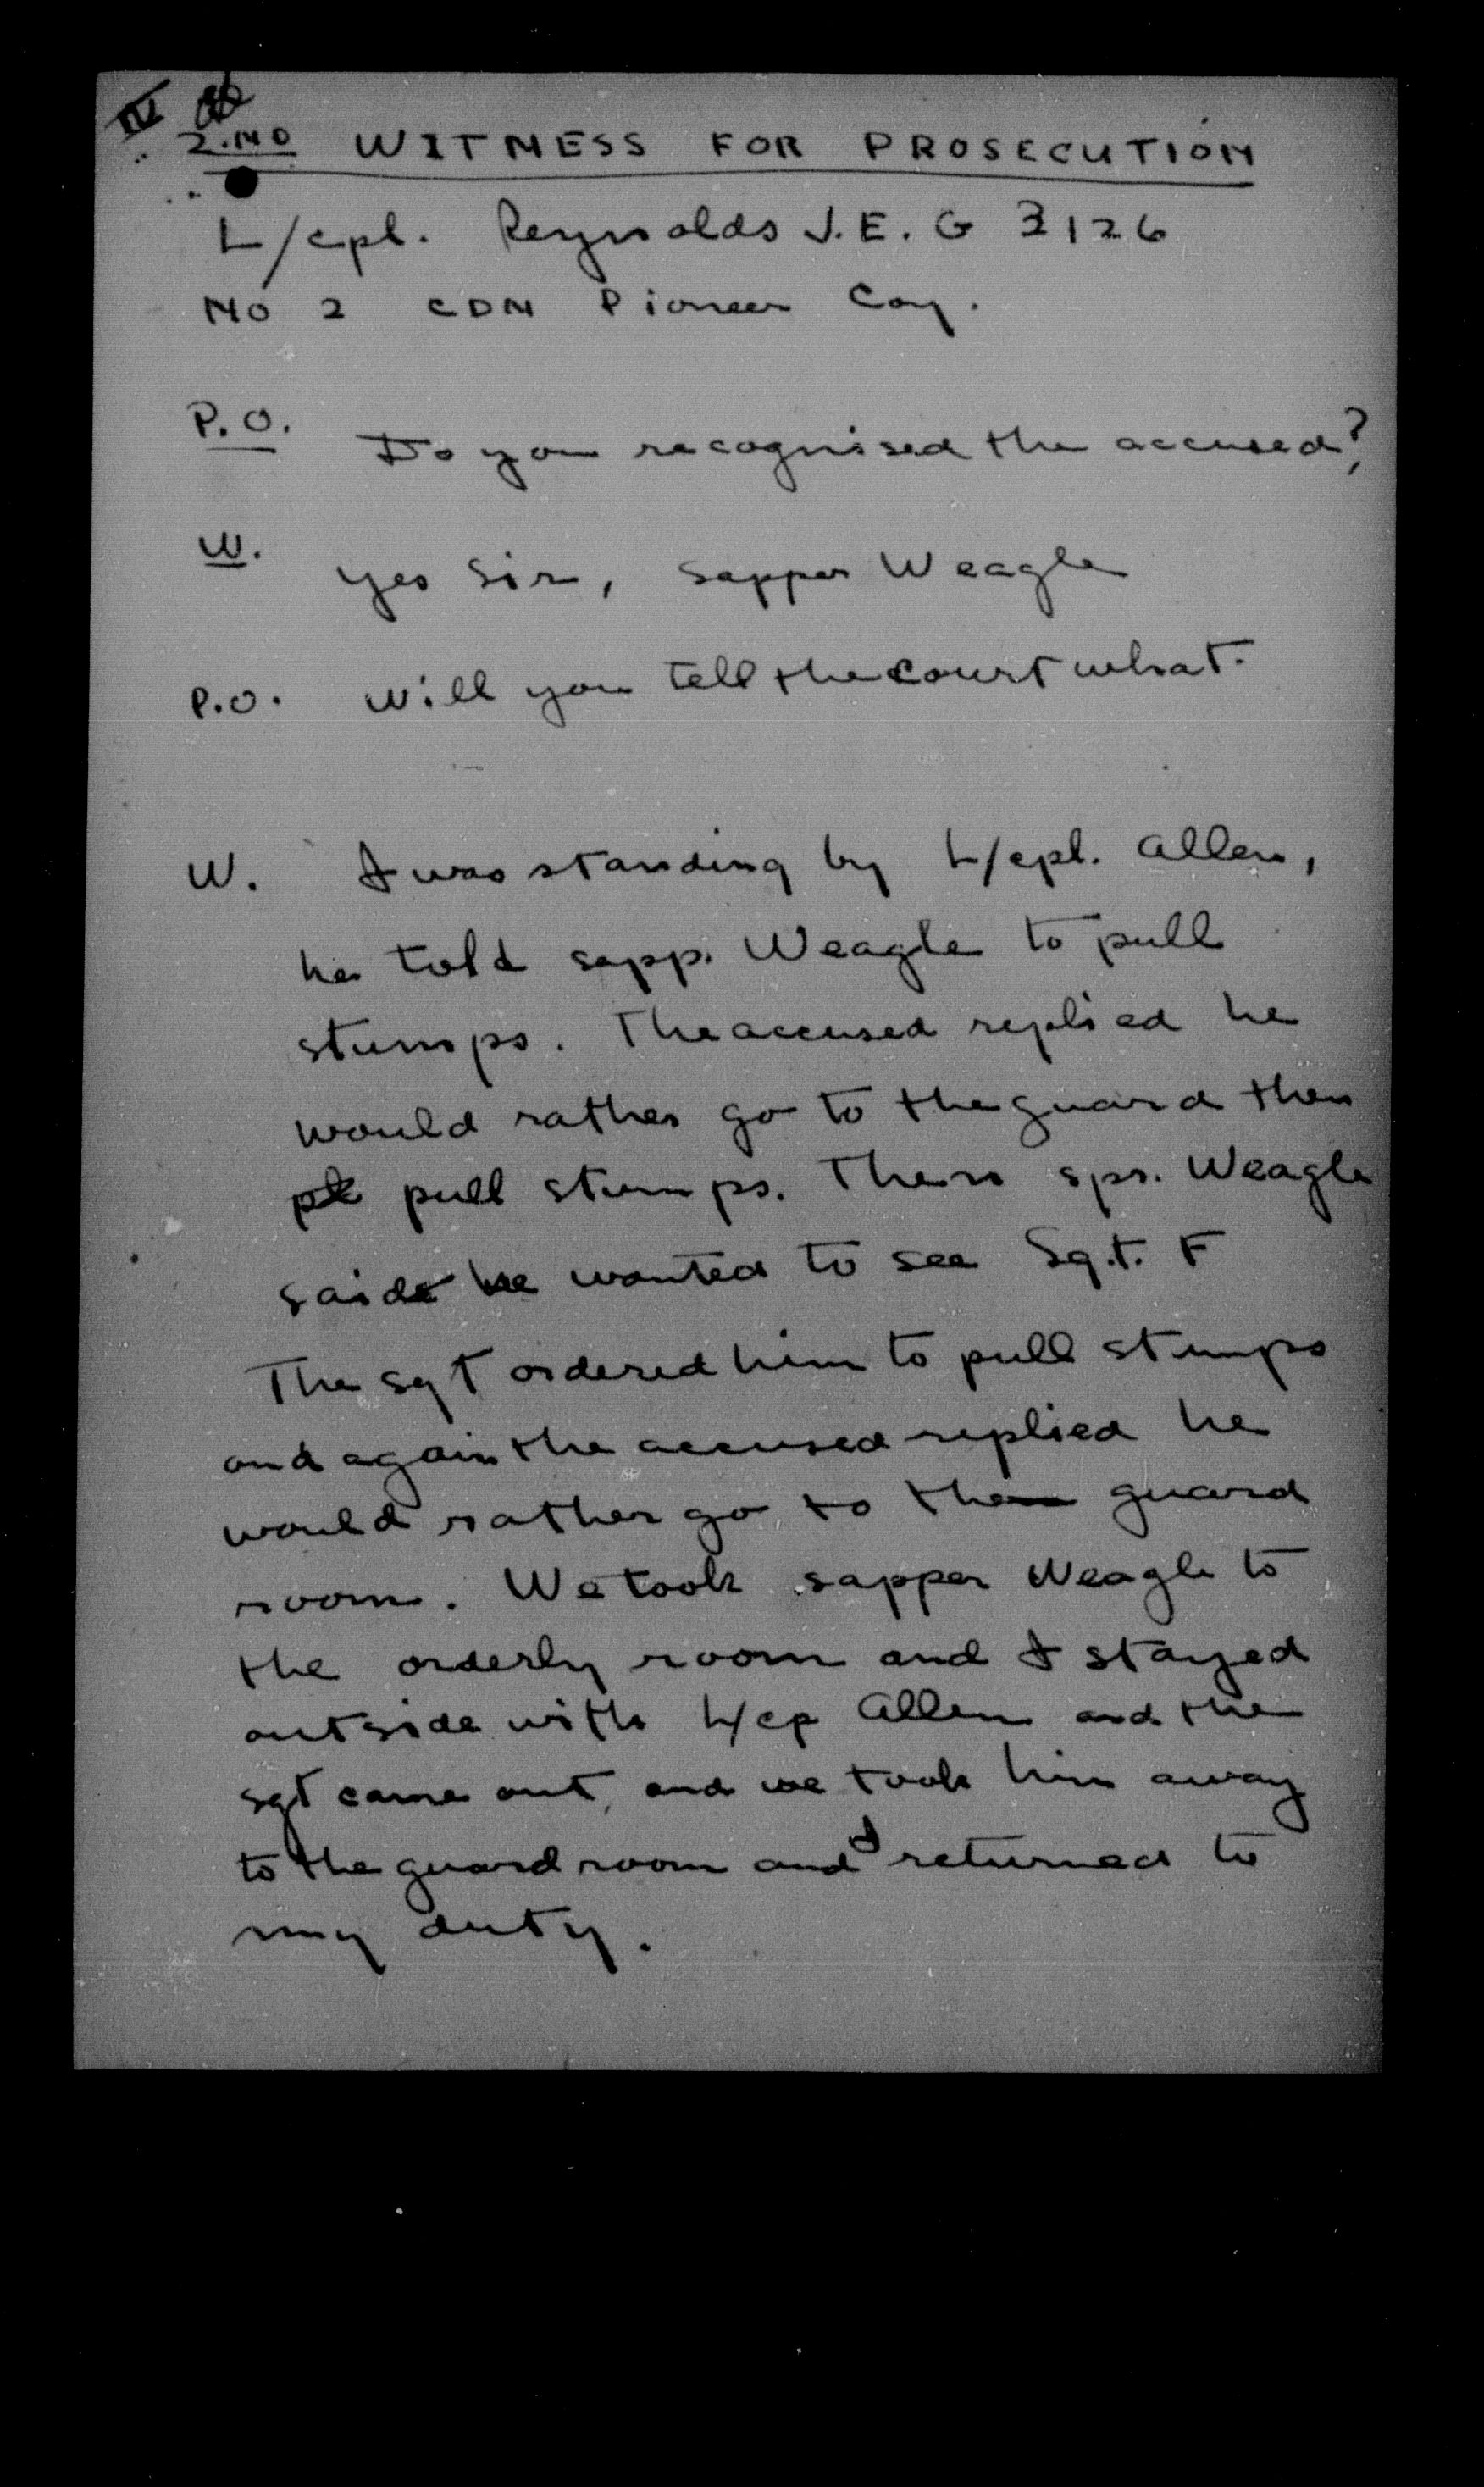 IV
2.ND WITNESS FOR PROSECUTION
L/cpl. Reynolds J.E. G 3126
NO 2 CDN Pioneer Coy.
P.O. Do you recognised the accused?
W. Yes Sir, Sapper Weagle
P.O. Will you tell the court what.
W. I was standing by L/cpl. Allen,
he told sapp. Weagle to pull
stumps. The accused replied he
would rather go to the guard then
pull stumps. Then spr. Weagle
said he wanted to see Sg.t. F
The sgt ordered him to pull stumps
and again the accused replied he
would rather go to the guard
room. We took sapper Weagle to
the orderly room and I stayed
outside with L/cp Allen and the
sgt came out, and we took him away
to the guard room and I returned to
my duty.